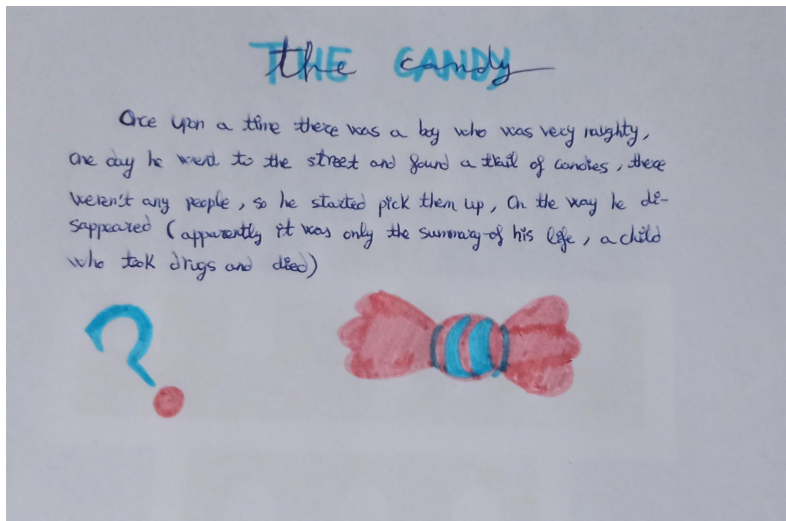 THE CANDY
the candy
Once upon a time there was a boy who was very naughty,
one day he went to the street and found a trail of candies, there
weren't any people, so he started pick them up, On the way he di-
sappeared (apparently it was only the summary of his life, a child
who took drugs and died)
?